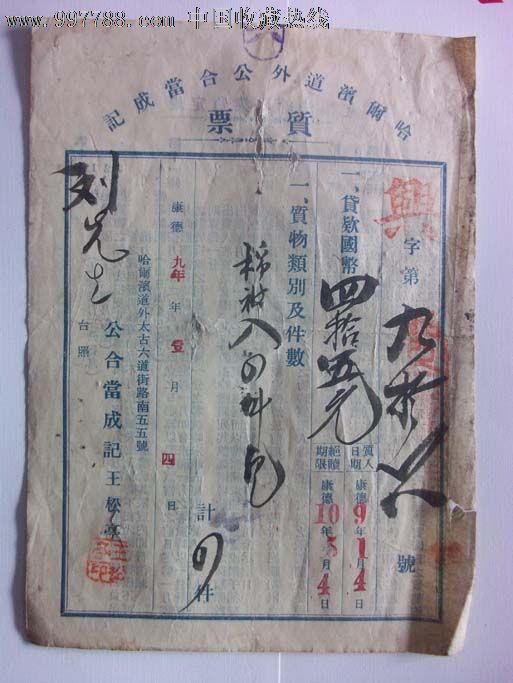 www.997788.com 中国收藏热线
哈爾濱道外公合當成記
質票
興字第九拾八號
一、貸款國幣四拾五元
質入日期 康德9年1月4日
絕贖期限 康德10年5月4日
一、質物類別及件數
計 件
康德九年 年 壹月 四日
哈爾濱道外太古六道街路南五五號
公合當成記王松亭
劉先生
台照